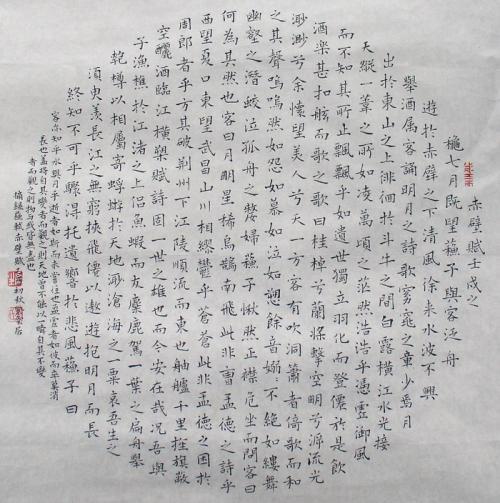 赤壁賦 壬戌之
穐七月既望蘓子與客泛舟
遊於赤壁之下清風徐来水波不興
舉酒属客誦明月之詩歌窈窕之章少焉月
出於東山之上徘徊於斗牛之間白露橫江水光接
天縱一葦之所如凌萬頃之茫然浩浩乎憑虛御風
而不知其所止飄飄乎如遺世獨立羽化而登僊於是飲
酒樂甚扣舷而歌之歌曰桂棹兮蘭槳擊空明兮泝流光
渺渺兮余懷望美人兮天一方客有吹洞簫者倚歌而和
之其聲嗚嗚然如怨如慕如泣如訴餘音嫋:不絕如縷舞
幽壑之潛蛟泣孤舟之嫠婦蘓子愀然正襟危坐而問客曰
何為其然也客曰月明星稀烏鵲南飛此非曹孟德之詩乎
西望夏口東望武昌山川相繆鬱乎蒼蒼此非孟德之困於
周郎者乎方其破荆州下江陵順流而東也舳艫千里旌旗蔽
空釃酒臨江橫槊賦詩固一世之雄也而今安在哉况吾與
子漁樵於江渚之上侶魚蝦而友麋鹿駕一葉之扁舟舉
匏樽以相屬寄蜉蝣於天地渺滄海之一粟哀吾生之
須臾羨長江之無窮挾飛僊以遨遊抱明月而長
終知不可乎驟得托遺響於悲風蘓子曰
客亦知乎水與月乎逝者如斯而未嘗往也盈虛者如彼而卒莫消
長也蓋將自其變者而觀之則天地曾不能以一瞬自其不變
者而觀之則物與我皆無盡也
摘錄蘓軾赤壁賦 初秋 居